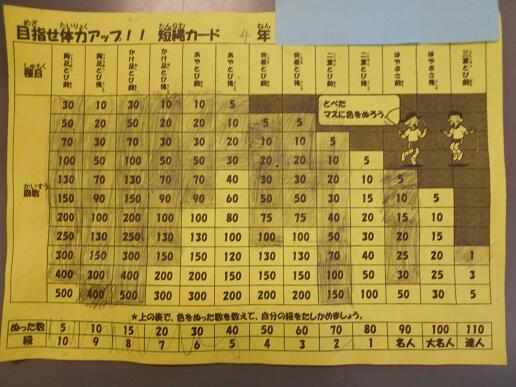 目指せ体力アップ！！ 短縄カード 4年
めざ たいりょく たんなわ ねん
しゅもく
種目 両足とび前 両足とび後 かけ足とび前 かけ足とび後 あやとび前 あやとび後 交差とび前 交差とび後 二重とび前 二重とび後 はやぶさ前 はやぶさ後 三重とび前
とべた
マスに色をぬろう
かいすう
回数
30 10 30 10 10 5
50 20 50 20 20 10 5 5
70 30 70 30 30 20 10 10 5
100 50 100 50 50 30 20 20 10 5
130 70 130 70 70 40 30 30 20 10 5
150 90 150 90 90 60 50 50 30 15 10 5
200 100 200 100 100 80 75 75 40 20 15 10
250 130 250 130 130 100 100 100 50 30 20 15
300 150 300 150 150 120 130 130 70 40 25 20 1
400 300 400 200 200 150 150 150 100 50 30 25 3
500 400 500 300 200 200 200 200 150 100 50 30 5
★上の表で、色をぬった数を数えて、自分の級をたしかめましょう。
ぬった数 5 10 15 20 30 40 50 60 70 80 90 100 110
級 10 9 8 7 6 5 4 3 2 1 名人 大名人 達人